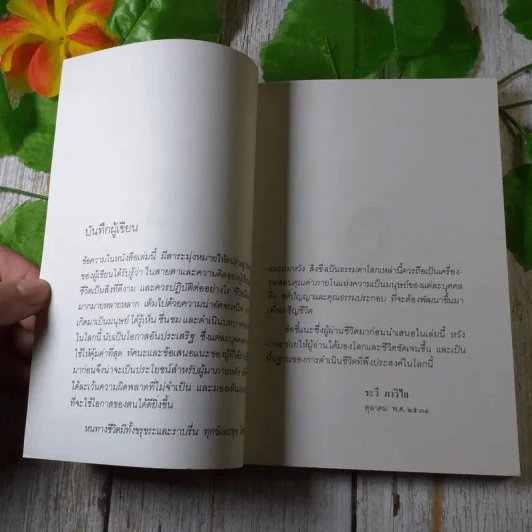 บันทึกผู้เขียน
ข้อความในหนังสือเล่มนี้ มีสาระมุ่งหมายให้คนรุ่น
ของผู้เขียนได้รับรู้ว่า ในสายตาและความคิดของผู้
ชีวิตเป็นสิ่งที่ดีงาม และควรปฏิบัติต่ออย่างไร
มากมายหลายหลาก เต็มไปด้วยความน่าอัศจรรย์ใจ
เกิดมาเป็นมนุษย์ ได้รู้เห็น ชื่นชม และดำเนินบทบาท
ในโลกนี้ นับเป็นโอกาสอันประเสริฐ ซึ่งแต่ละบุคคล
ใช้ให้คุ้มค่าที่สุด ทัศนะและข้อเสนอแนะของผู้ที่ได้
มาก่อนจึงน่าจะเป็นประโยชน์สำหรับผู้มาภายหลัง
ได้ละเว้นความผิดพลาดที่ไม่จำเป็น และมองเห็น
ที่จะใช้โอกาสของตนได้ดียิ่งขึ้น
หนทางชีวิตมีทั้งขรุขระและราบรื่น ทุกข์และสุข
และสมหวัง สิ่งซึ่งเป็นธรรมดาโลกเหล่านี้ควรถือเป็นเครื่อง
ทดสอบคุณค่าภายในแห่งความเป็นมนุษย์ของแต่ละบุคคล
คือ สติปัญญาและคุณธรรมประกอบ ที่จะต้องพัฒนาขึ้นมา
เพื่อเผชิญชีวิต
ข้อชี้แนะซึ่งผู้ผ่านชีวิตมาก่อนนำเสนอในเล่มนี้ หวัง
ว่าจะช่วยให้ผู้อ่านได้มองโลกและชีวิตชัดเจนขึ้น และเป็น
พื้นฐานของการดำเนินชีวิตที่พึงประสงค์ในโลกนี้
ระวี ภาวิไล
ตุลาคม พ.ศ. ๒๕๓๑